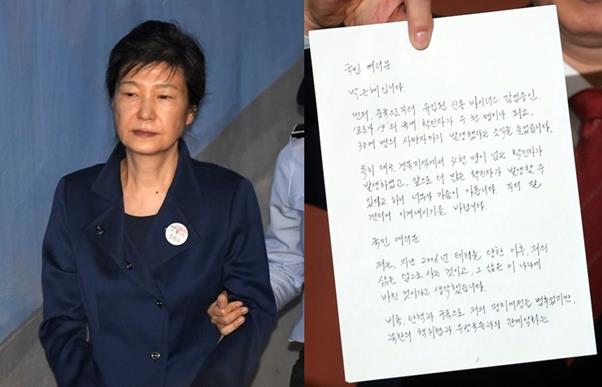 503
국민 여러분
박근혜입니다.
먼저, 중국으로부터 유입된 신종 바이러스 감염증인
'코로나 19'의 국내 확진자가 수 천 명이나 되고,
30여 명의 사망자까지 발생했다는 소식을 들었습니다.
특히 대구, 경북지역에서 4천 명이 넘는 확진자가
발생하였고, 앞으로 더 많은 확진자가 발생할 수
있다고 하니 너무나 가슴이 아픕니다. 부디 잘
견디어 이겨내시기를 바랍니다.
국민 여러분
저는, 지난 2006년 테러를 당한 이후, 저의
삶은 덤으로 사는 것이고, 그 삶은 이 나라에
바친 것이라고 생각했습니다.
비록, 탄핵과 구속으로 저의 정치여정은 멈추었지만,
북한의 핵위협과 우방국들과의 관계악화는
1